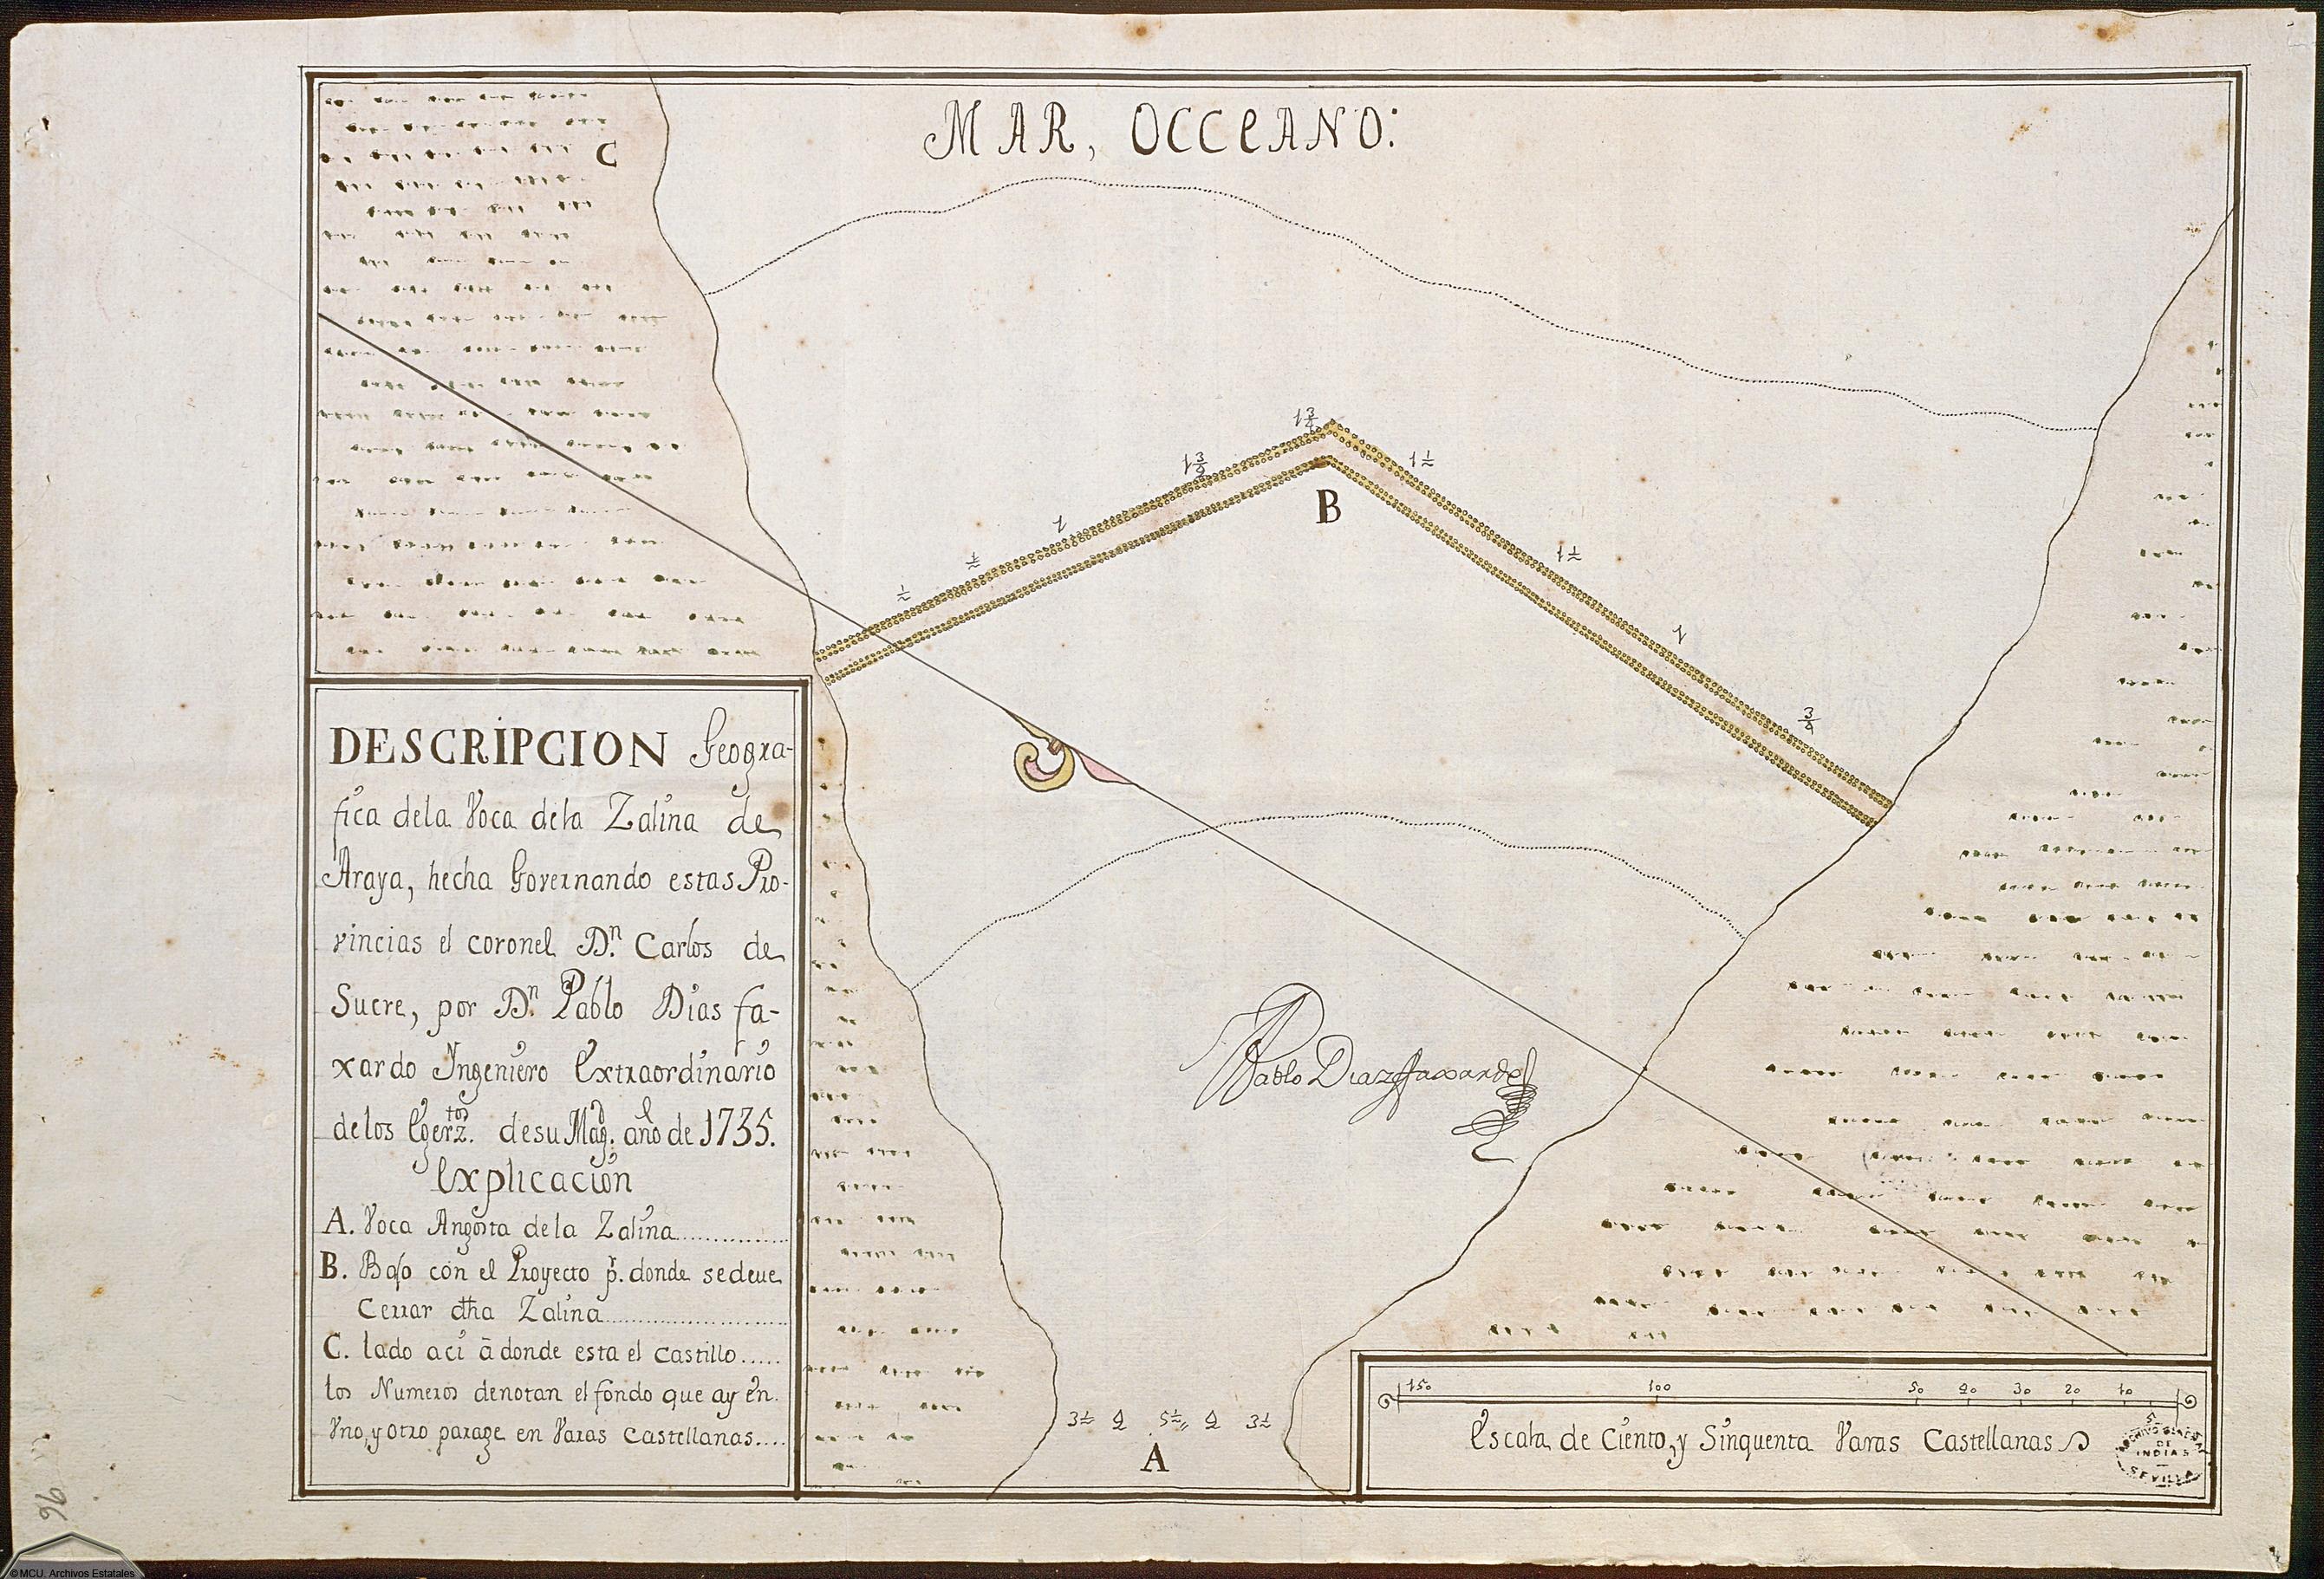 MAR, OCCEANO:
C
1 3/4
1 3/4
1 1/2
1
1/2
1/2
B
1 1/2
1
3/4
DESCRIPCION Geogra-
fica dela Voca dela Zalina de
Araya, hecha Governando estas Pro-
vincias el coronel Dn. Carlos de
Sucre, por Dn. Pablo Dias fa-
xardo Ingeniero Extraordinario
de los Egerztos. desu Magd. año de 1735.
Explicacion
A. Voca Angosta de la Zalina
B. Bajo con el Proyecto pr. donde sedeue
Cerrar dha Zalina
C. lado aci à donde esta el castillo
los Numeros denotan el fondo que ay en
Vno, y otro parage en Varas Castellanas
Pablo Diaz faxardo
3 1/2 4 5 1/2 4 3 1/2
A
150 100 50 40 30 20 10
5
Escala de Ciento, y Sinquenta Varas Castellanas
ARCHIVO GENERAL
DE
INDIAS
SEVILLA
96
© MCU. Archivos Estatales